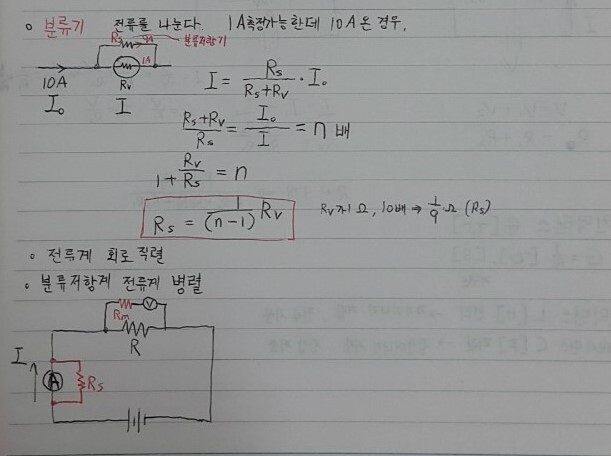 ◦ 분류기 전류를 나눈다. 1A측정가능한데 10A 온 경우,
Rs 9A 분류저항기
1A
10A Rv
I₀ I
I = Rs/(Rs+Rv) · I₀
(Rs+Rv)/Rs = I₀/I = n 배
1 + Rv/Rs = n
Rs = 1/(n-1) Rv Rv가 1Ω, 10배 → 1/9 Ω (Rs)
◦ 전류계 회로 직렬
◦ 분류저항계 전류계 병렬
V
Rm
R
I
A Rs